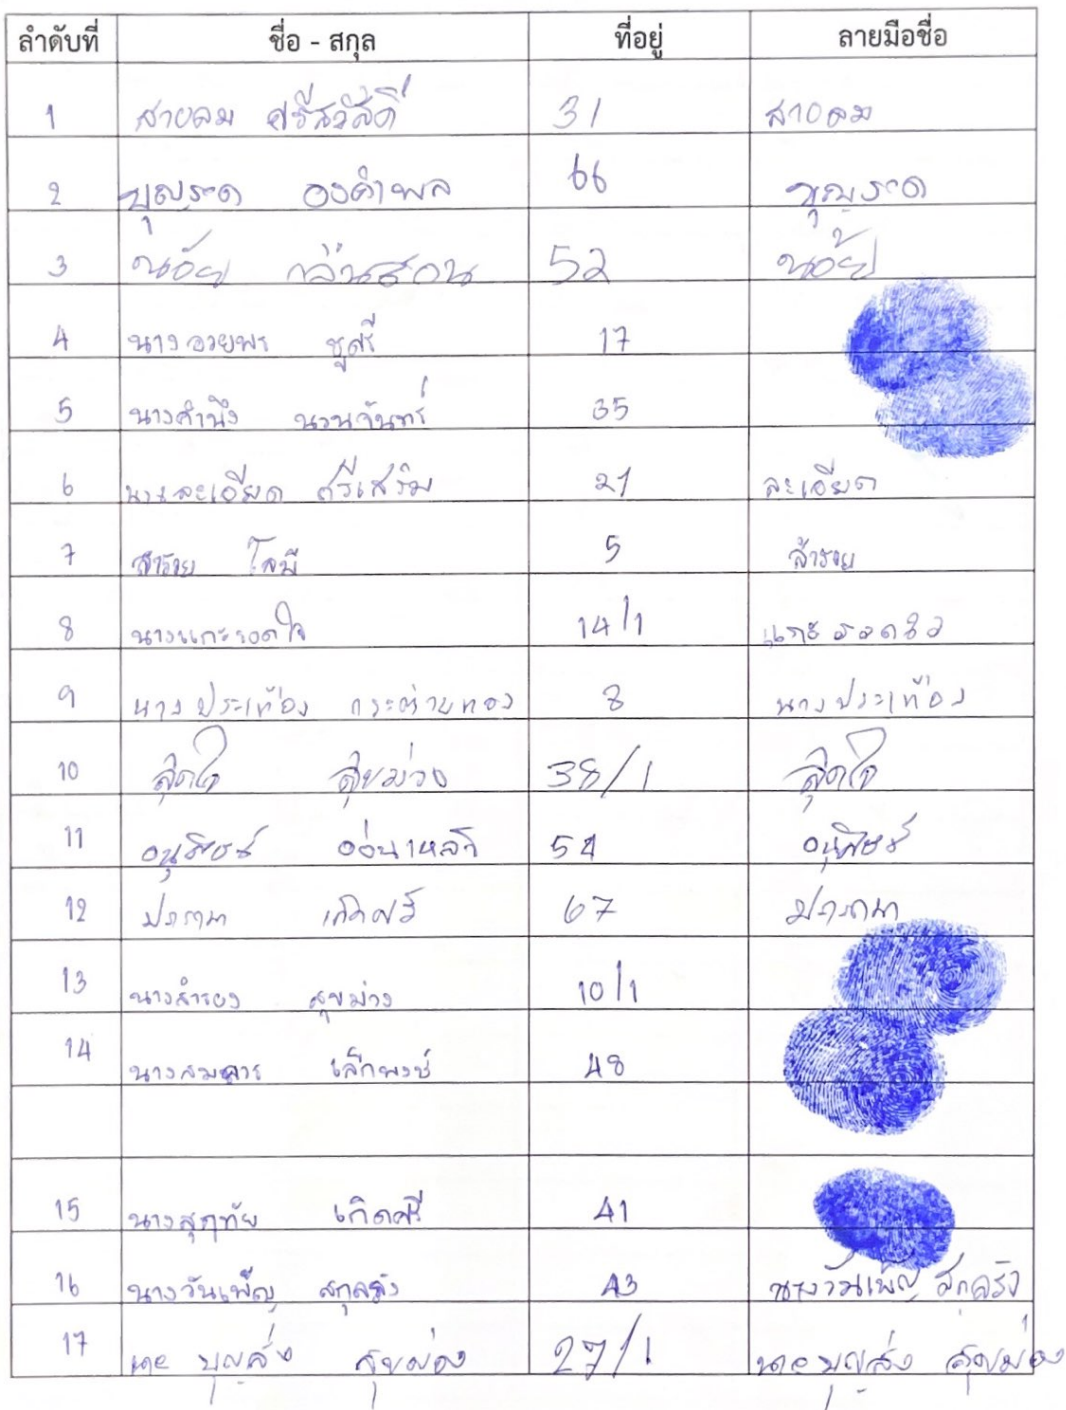 ลำดับที่ ชื่อ - สกุล ที่อยู่ ลายมือชื่อ
1 สายลม ศรีสวัสดิ์ 31 สายลม
2 บุญรอด องคำพล 66 บุญรอด
3 น้อย กลิ่นสอน 52 น้อย
4 นางอวยพร ชูศรี 17
5 นางคำนึง นวนจันทร์ 35
6 นางละเอียด ศรีเสริม 21 ละเอียด
7 สำรวย โลมี 5 สำรวย
8 นางแกะรอดใจ 14/1 แกะ
9 นางประเทือง กระต่ายทอง 8 นางประเทือง
10 สุดใจ สุขม่วง 38/1 สุดใจ
11 อ่อนเหลา 54
12 เกิดศรี 67
13 นางสำรอง สุขม่วง 10/1
14 นางสมควร เล็กพงษ์ 48
15 นางสุฤทัย เกิดศรี 41
16 นางวันเพ็ญ 43 นางวันเพ็ญ
17 บุญส่ง สุขม่วง 27/1 บุญส่ง สุขม่วง